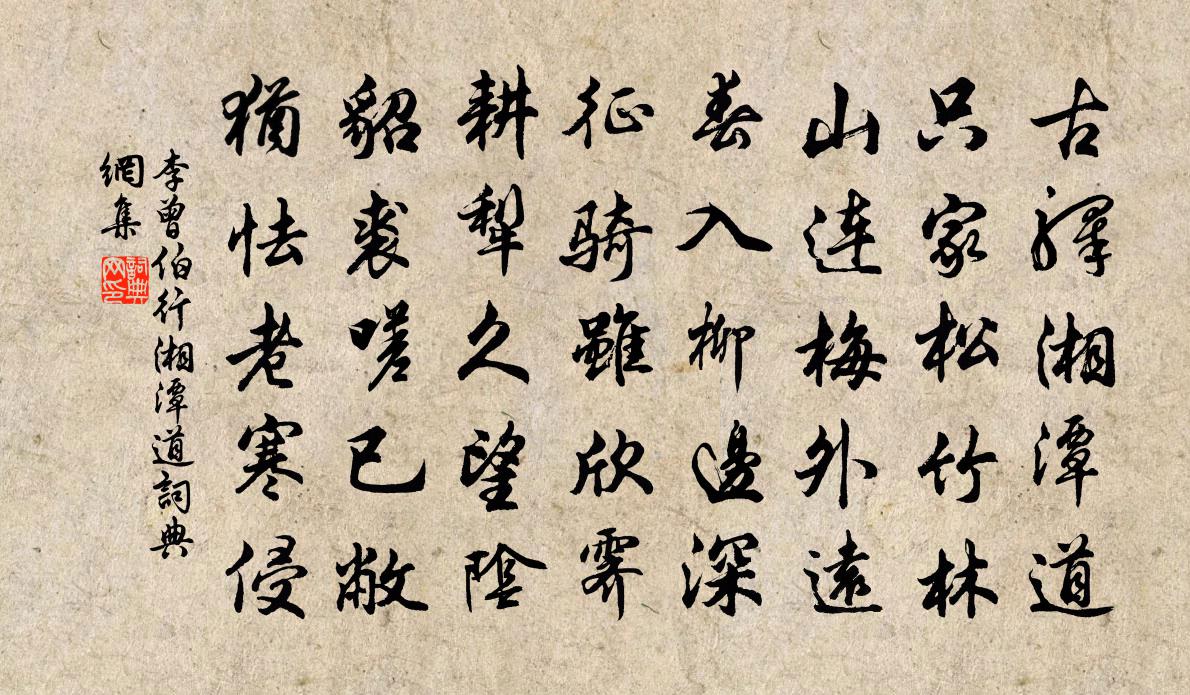 古驛湘潭道
只家松竹林
山連梅外遠
春入柳邊深
征騎雖欣霽
耕犁久望陰
貂裘嗟已敝
猶怯老寒侵
李曾伯行湘潭道詞典
網集
詞典
网印